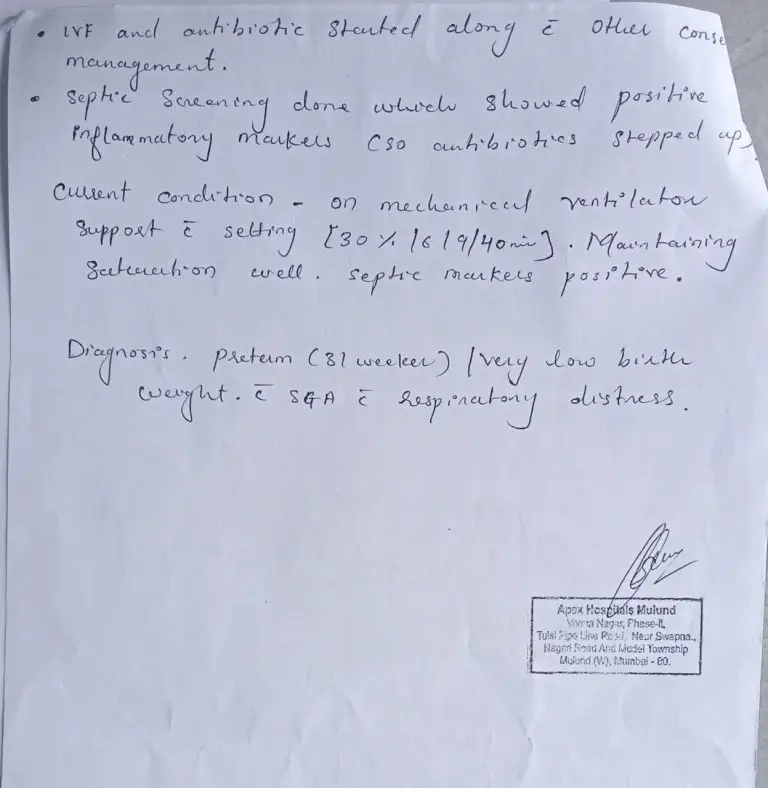 • IVF and antibiotic started along c̄ other conse
management.
• Septic Screening done which showed positive
inflammatory markers (so antibiotics stepped up)
Current condition - on mechanical ventilator
support c̄ setting [30% /6/9/40min]. Maintaining
saturation well. septic markers positive.
Diagnosis. preterm (31 weeker) / very low birth
weight. c̄ SGA c̄ respiratory distress.
Apex Hospitals Mulund
Veena Nagar, Phase-II,
Tulsi Pipe Line Road, Near Swapna.,
Nagari Road And Model Township
Mulund (W), Mumbai - 80.